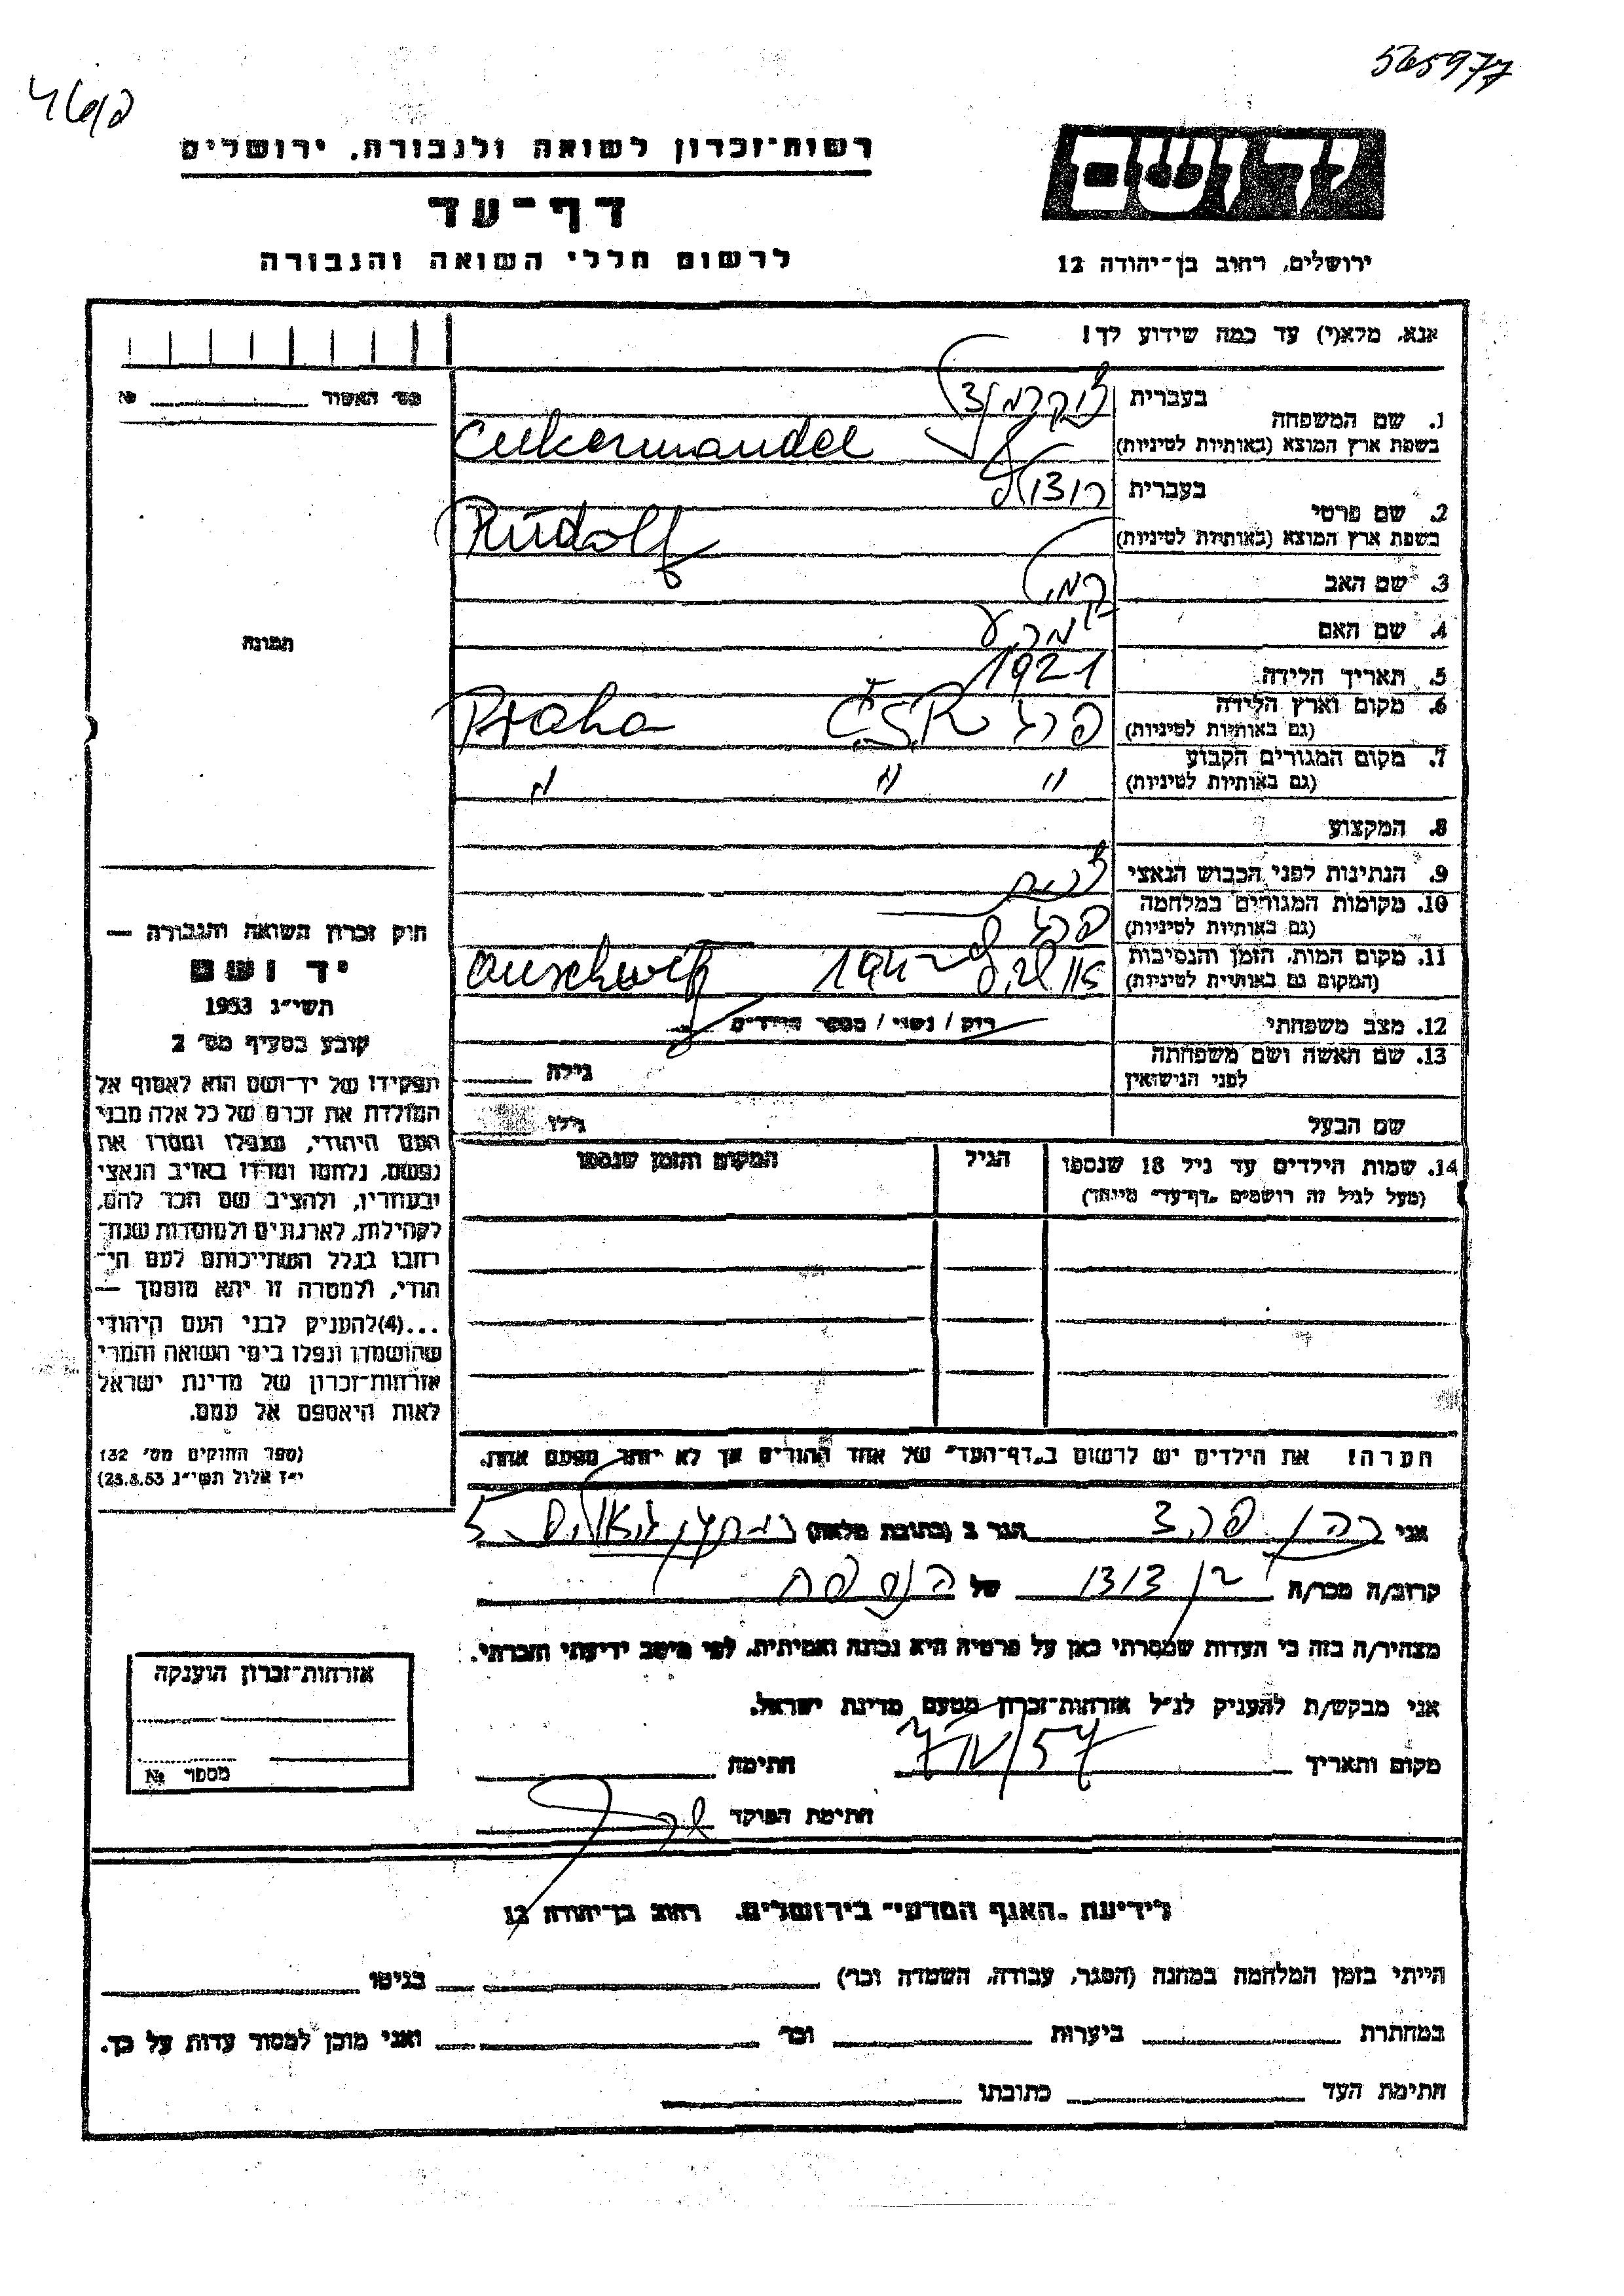 565977
רשות־זכרון לשואה ולגבורה, ירושלים
דף־עד
לרשום חללי השואה והגבורה
יד ושם
ירושלים, רחוב בן־יהודה 12
אנא, מלא(י) עד כמה שידוע לך!
מס׳ האשור № 
1. שם המשפחה בעברית צוקרמנדל
בשפת ארץ המוצא (באותיות לטיניות) Cukermandel
2. שם פרטי בעברית רודולף
בשפת ארץ המוצא (באותיות לטיניות) Rudolf
3. שם האב
4. שם האם
5. תאריך הלידה 1921
6. מקום וארץ הלידה (גם באותיות לטיניות) פרג Č.S.R. Praha
7. מקום המגורים הקבוע (גם באותיות לטיניות) " " "
8. המקצוע
9. הנתינות לפני הכבוש הנאצי
10. מקומות המגורים במלחמה (גם באותיות לטיניות) פרג
11. מקום המות, הזמן והנסיבות (המקום גם באותיות לטיניות) Auschwitz
12. מצב משפחתי רוק / נשוי / מספר הילדים
13. שם האשה ושם משפחתה לפני הנישואין גילה
שם הבעל גילו
14. שמות הילדים עד גיל 18 שנספו הגיל המקום והזמן שנספו
(מעל לגיל זה רושמים „דף־עד״ מיוחד)
הערה! את הילדים יש לרשום ב„דף־העד״ של אחד ההורים אך לא יותר מפעם אחת.
תמונה
חוק זכרון השואה והגבורה —
יד ושם
תשי״ג 1953
קובע בסעיף מס׳ 2
תפקידו של יד־ושם הוא לאסוף אל
המולדת את זכרם של כל אלה מבני
העם היהודי, שנפלו ומסרו את
נפשם, נלחמו ומרדו באויב הנאצי
ובעוזריו, ולהציב שם וזכר להם,
לקהילות, לארגונים ולמוסדות שנח־
רבו בגלל השתייכותם לעם הי־
הודי, ולמטרה זו יהא מוסמך —
...(4)להעניק לבני העם היהודי
שהושמדו ונפלו בימי השואה והמרי
אזרחות־זכרון של מדינת ישראל
לאות היאספם אל עמם.
(ספר החוקים מס׳ 132
י״ז אלול תשי״ג 28.8.53)
אני הגר ב (כתובת מלאה)
קרוב/ה מכר/ה בן דוד של הנספה
מצהיר/ה בזה כי העדות שמסרתי כאן על פרטיה היא נכונה ואמיתית, לפי מיטב ידיעתי והכרתי.
אני מבקש/ת להעניק לנ״ל אזרחות־זכרון מטעם מדינת ישראל.
מקום ותאריך חתימה
חתימת הפוקד
אזרחות־זכרון הוענקה
מספר №
לידיעת „האגף המדעי״ בירושלים, רחוב בן־יהודה 12
הייתי בזמן המלחמה במחנה (הסגר, עבודה, השמדה וכו׳) בגיטו
במחתרת ביערות וכו׳ ואני מוכן למסור עדות על כך.
חתימת העד כתובתו